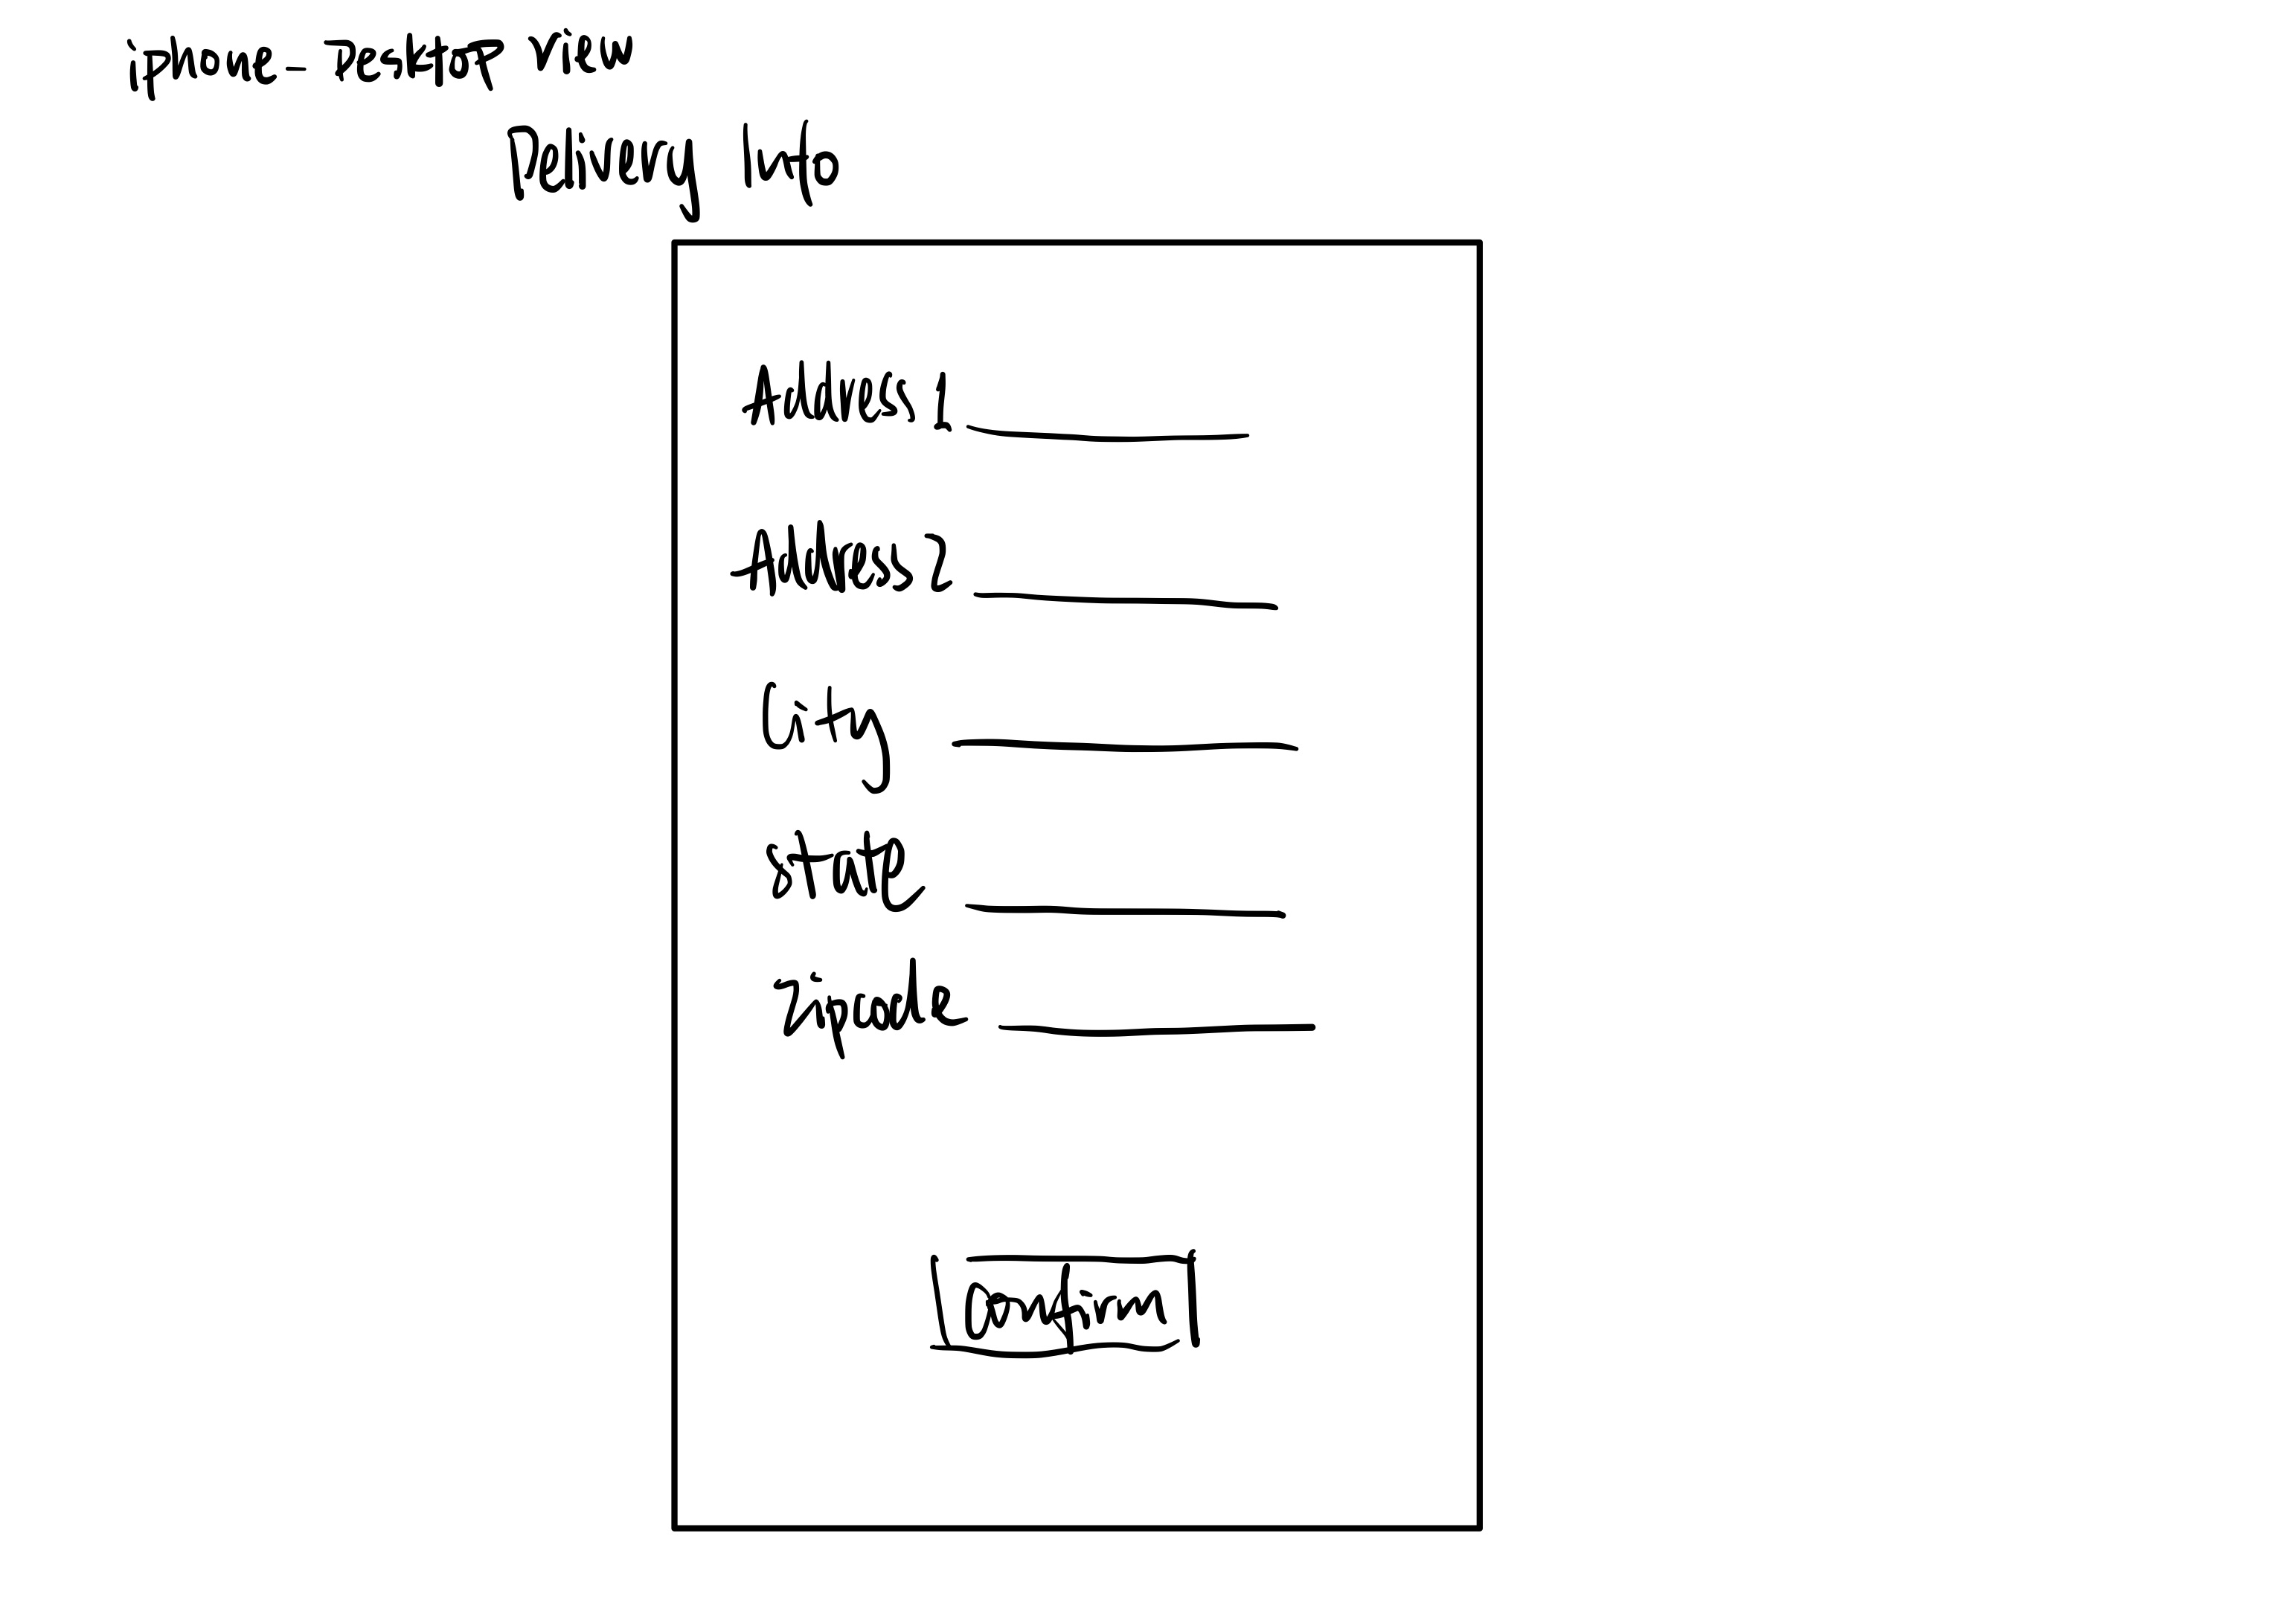 iphone - Desktop view
Delivery Info
Address 1
Address 2
City
State
Zipcode
Confirm